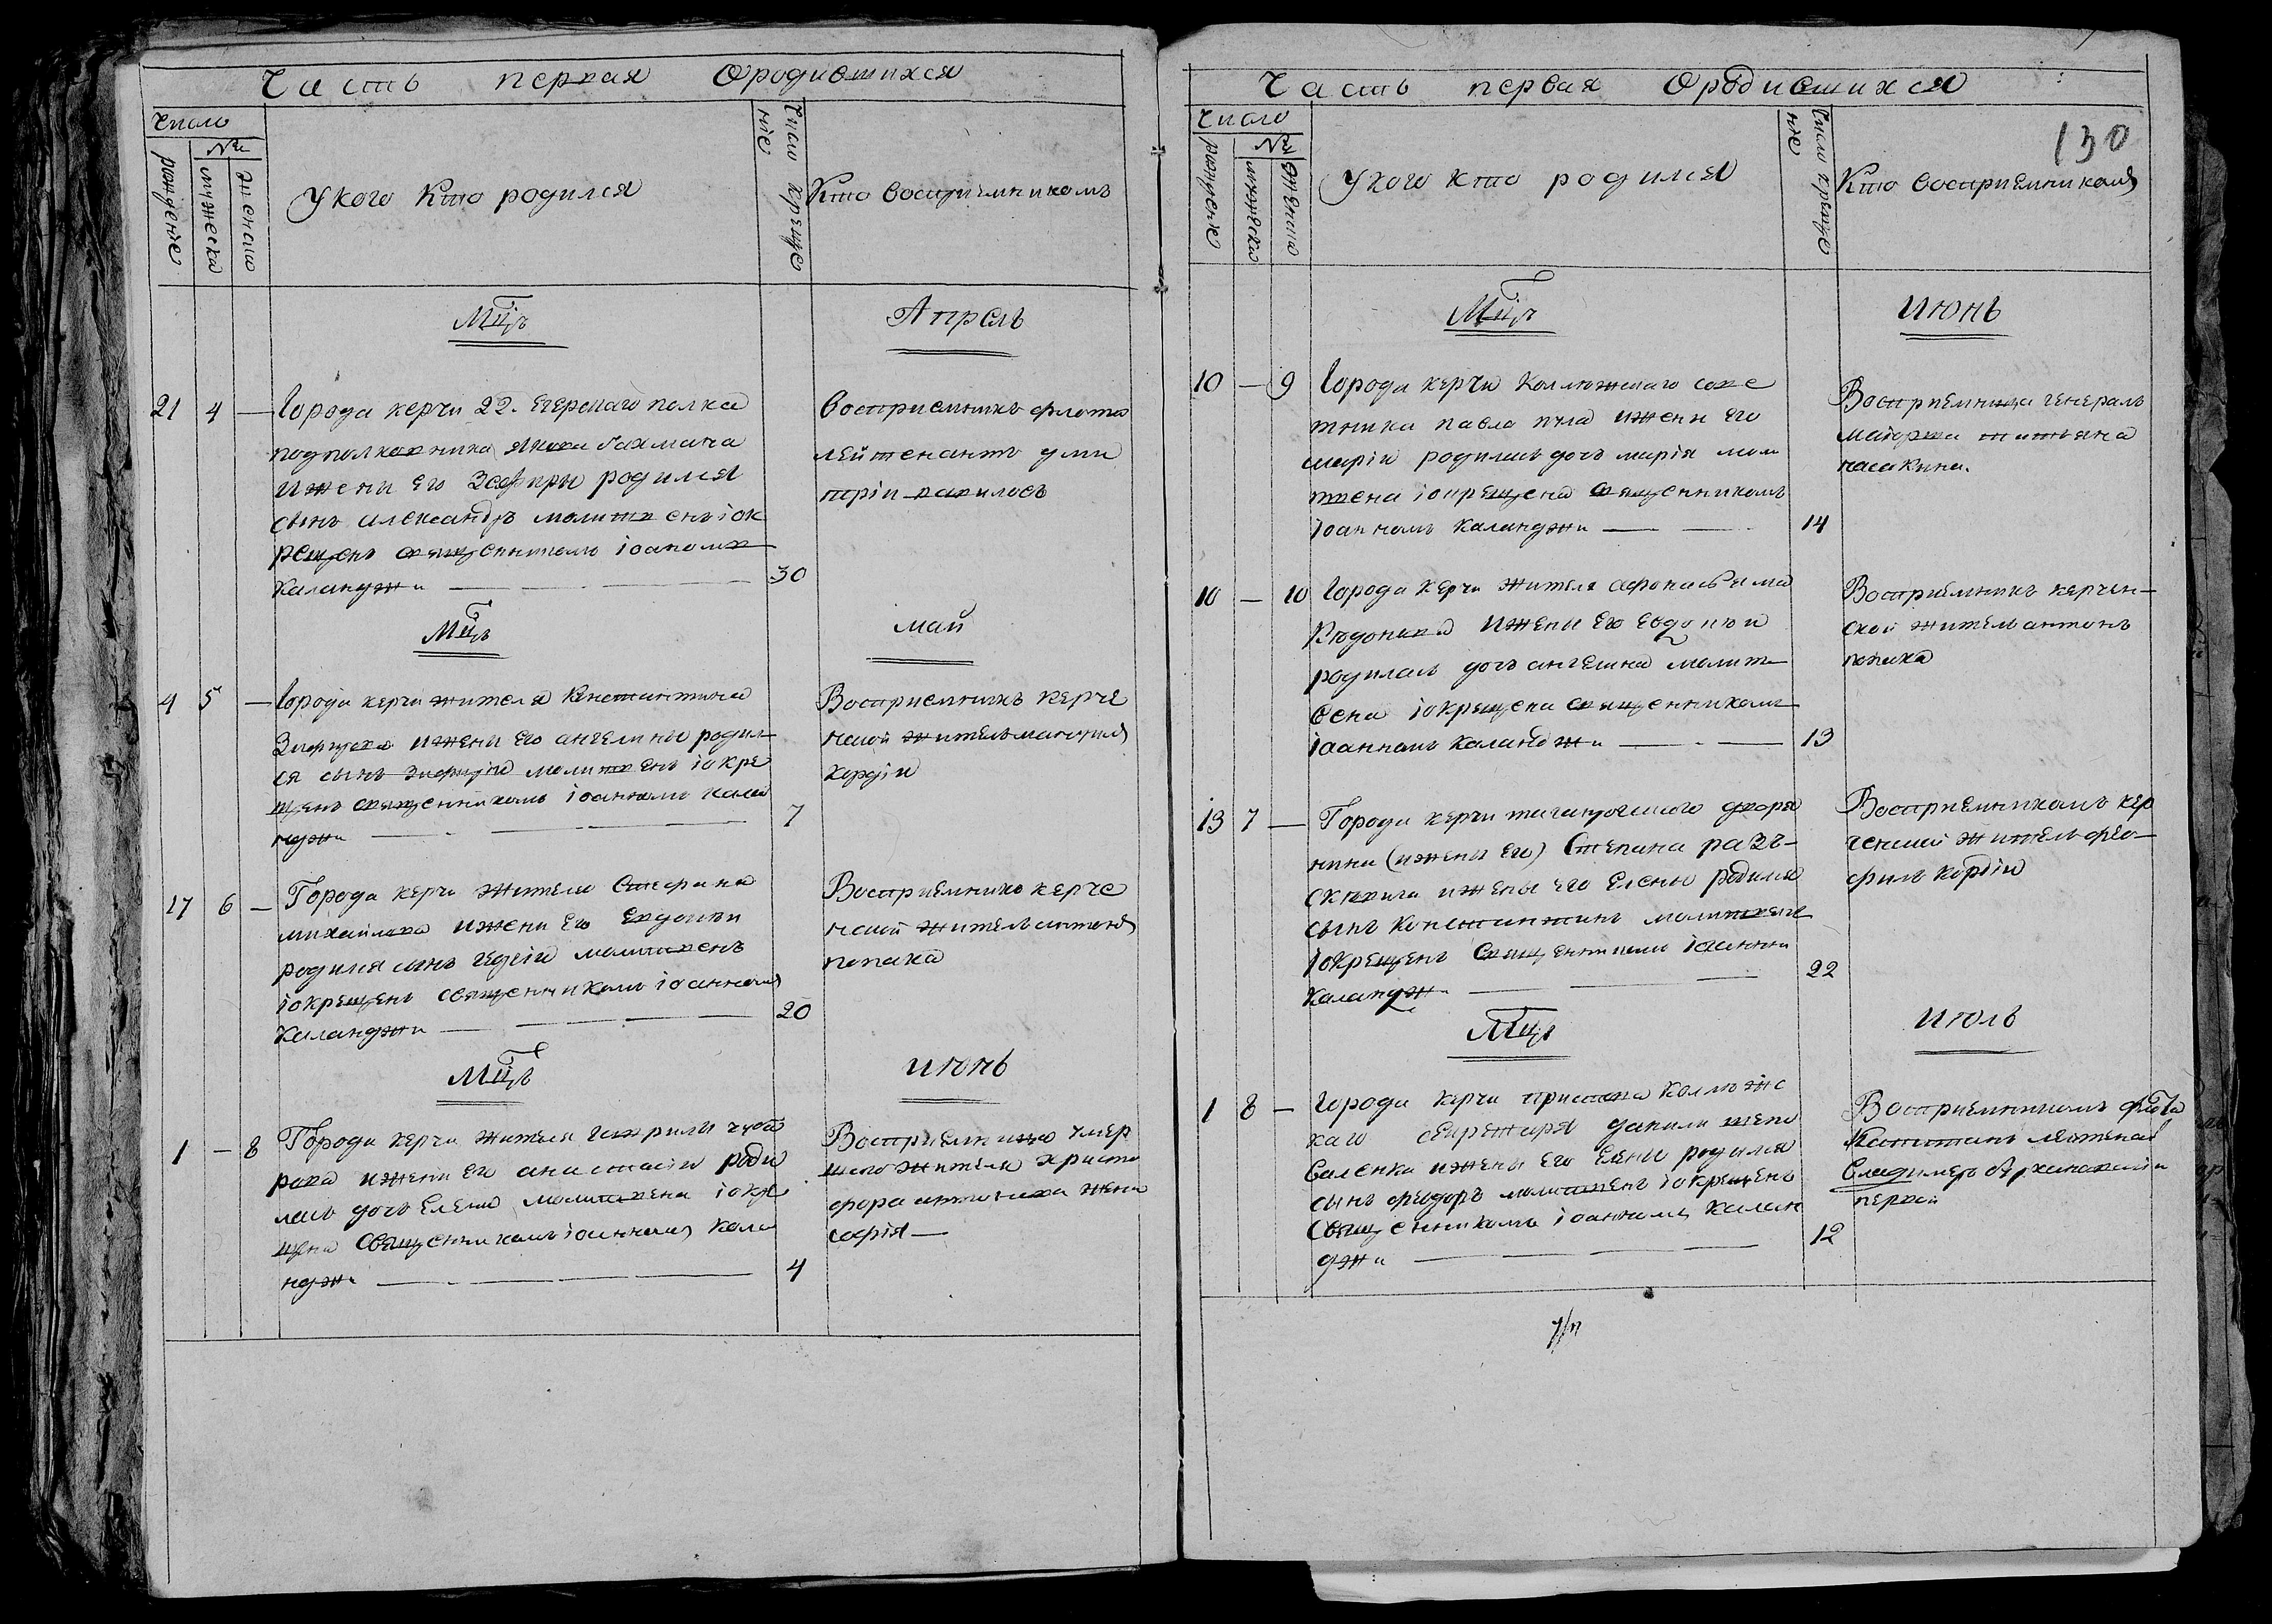 Часть первая Ородившихся
Число
№и
рождение
мужеска
женска
Укого Кто родился
Число креще
ніе
Кто Воспріемникомъ
Мцъ Апрель
21 4 — Города керчи 22. Егерскаго полка
подполковника Якова бахмана
ижени Его Зефиры родился
сынъ александръ молитвенъ іок
рещенъ священникомъ іоаномъ
Каланджи 30
Воспріемникъ флота
лейтенантъ дми
трій
Мцъ май
4 5 — Города керчи жителя Константина
ижены Его ангелины родил
ся сынъ молитвенъ іокре
щенъ священникомъ іоанномъ кала
нджи 7
Воспріемникъ керче
нской житель мануилъ
кордіи
17 6 — Города керчи жителя Стефана
михайлова ижени Его Евдокіи
родился сынъ молитвенъ
іокрещенъ священникомъ іоанномъ
Каланджи 20
Воспріемникъ керче
нской житель антонъ
попака
Мцъ июнь
1 — 8 Города керчи жителя гаврилы
ижени Его анастасіи роди
лась дочь Елена молитвена іокре
щена Священникомъ іоанномъ кала
нджи 4
Воспріемница умер
шаго жителя христо
фора жена
софія —
Часть первая Ородившихся
130
Число
№и
рожденіе
мужеска
женска
Укого кто родился
Число креще
ніе
Кто Воспріемникомъ
Мцъ июнь
10 — 9 Города керчи Коллежскаго сове
тника павла ижени Его
маріи родилась дочь марія моли
твена іокрещена священникомъ
іоанномъ Каланджи 14
Воспріемница генералъ
маіорша татьяна
насакина.
10 — 10 Города керчи жителя
ижени Его евдокіи
родилась дочь ангелина молит
вена іокрещена священникомъ
іоанномъ каланджи 13
Воспріемникъ керчен-
ской житель антонъ
попака
13 7 — Города керчи таганрогскаго дворя
нина (ижены Его) Степана
ижены его Елены родился
сынъ Константинъ молитвенъ
іокрещенъ Священникомъ іоанном
Каландж. 22
Воспріемникомъ кер
ченской житель фео-
филъ кордіи
Мцъ июль
1 8 — Города керчи пристава Коллежс
каго секретаря данили шепо
валенка ижены Его Елены родился
сынъ феодоръ молитвенъ іокрещенъ
Священникомъ іоанномъ Калан
джи 12
Воспріемникомъ флота
Капитанъ лейтенант
Владимеръ
первой